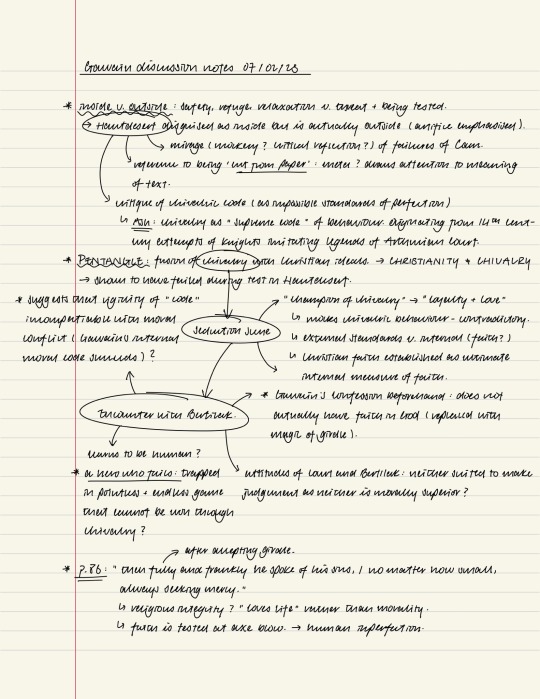 Gawain discussion notes 07/02/23
* inside v. outside : safety, refuge, relaxation v. threat + being tested.
↳ Hautdesert disguised as inside but is actually outside (artifice emphasised).
→ mirage (mockery? critical reflection?) of failures of Cam.
reference to being 'cut from paper' : meta? draws attention to meaning
of text.
critique of chivalric code (as impossible standards of perfection)
↳ chivalry as "supreme code" of behaviour. Originating from 14th cent-
ury attempts of knights imitating legends of Arthurian court.
* PENTANGLE: fusion of chivalry with Christian ideals → CHRISTIANITY & CHIVALRY
→ shown to have failed during test in Hautdesert.
* suggests that rigidity of "code"
incompatible with moral
conflict (Gawain's internal
moral code succeeds) ?
seduction scene
"champion of chivalry" → "loyalty + love"
↳ makes chivalric behaviour - contradictory.
↳ external standards v. internal (faith?)
↳ Christian faith established as ultimate
internal measure of faith.
encounter with Bertilak.
* Gawain's confession beforehand : does not
actually have faith in God (replaced with
magic of girdle).
learns to be human?
* a hero who fails: trapped
in pointless + endless game
that cannot be won through
chivalry?
attitudes of Cam and Bertilak: neither suited to make
judgement as neither is morally superior?
→ after accepting girdle.
* P.86 : "then fully and frankly he spoke of his sins, / no matter how small,
always seeking mercy."
↳ religious integrity? "loves life" rather than morality.
↳ faith is tested at axe blow. → human imperfection.